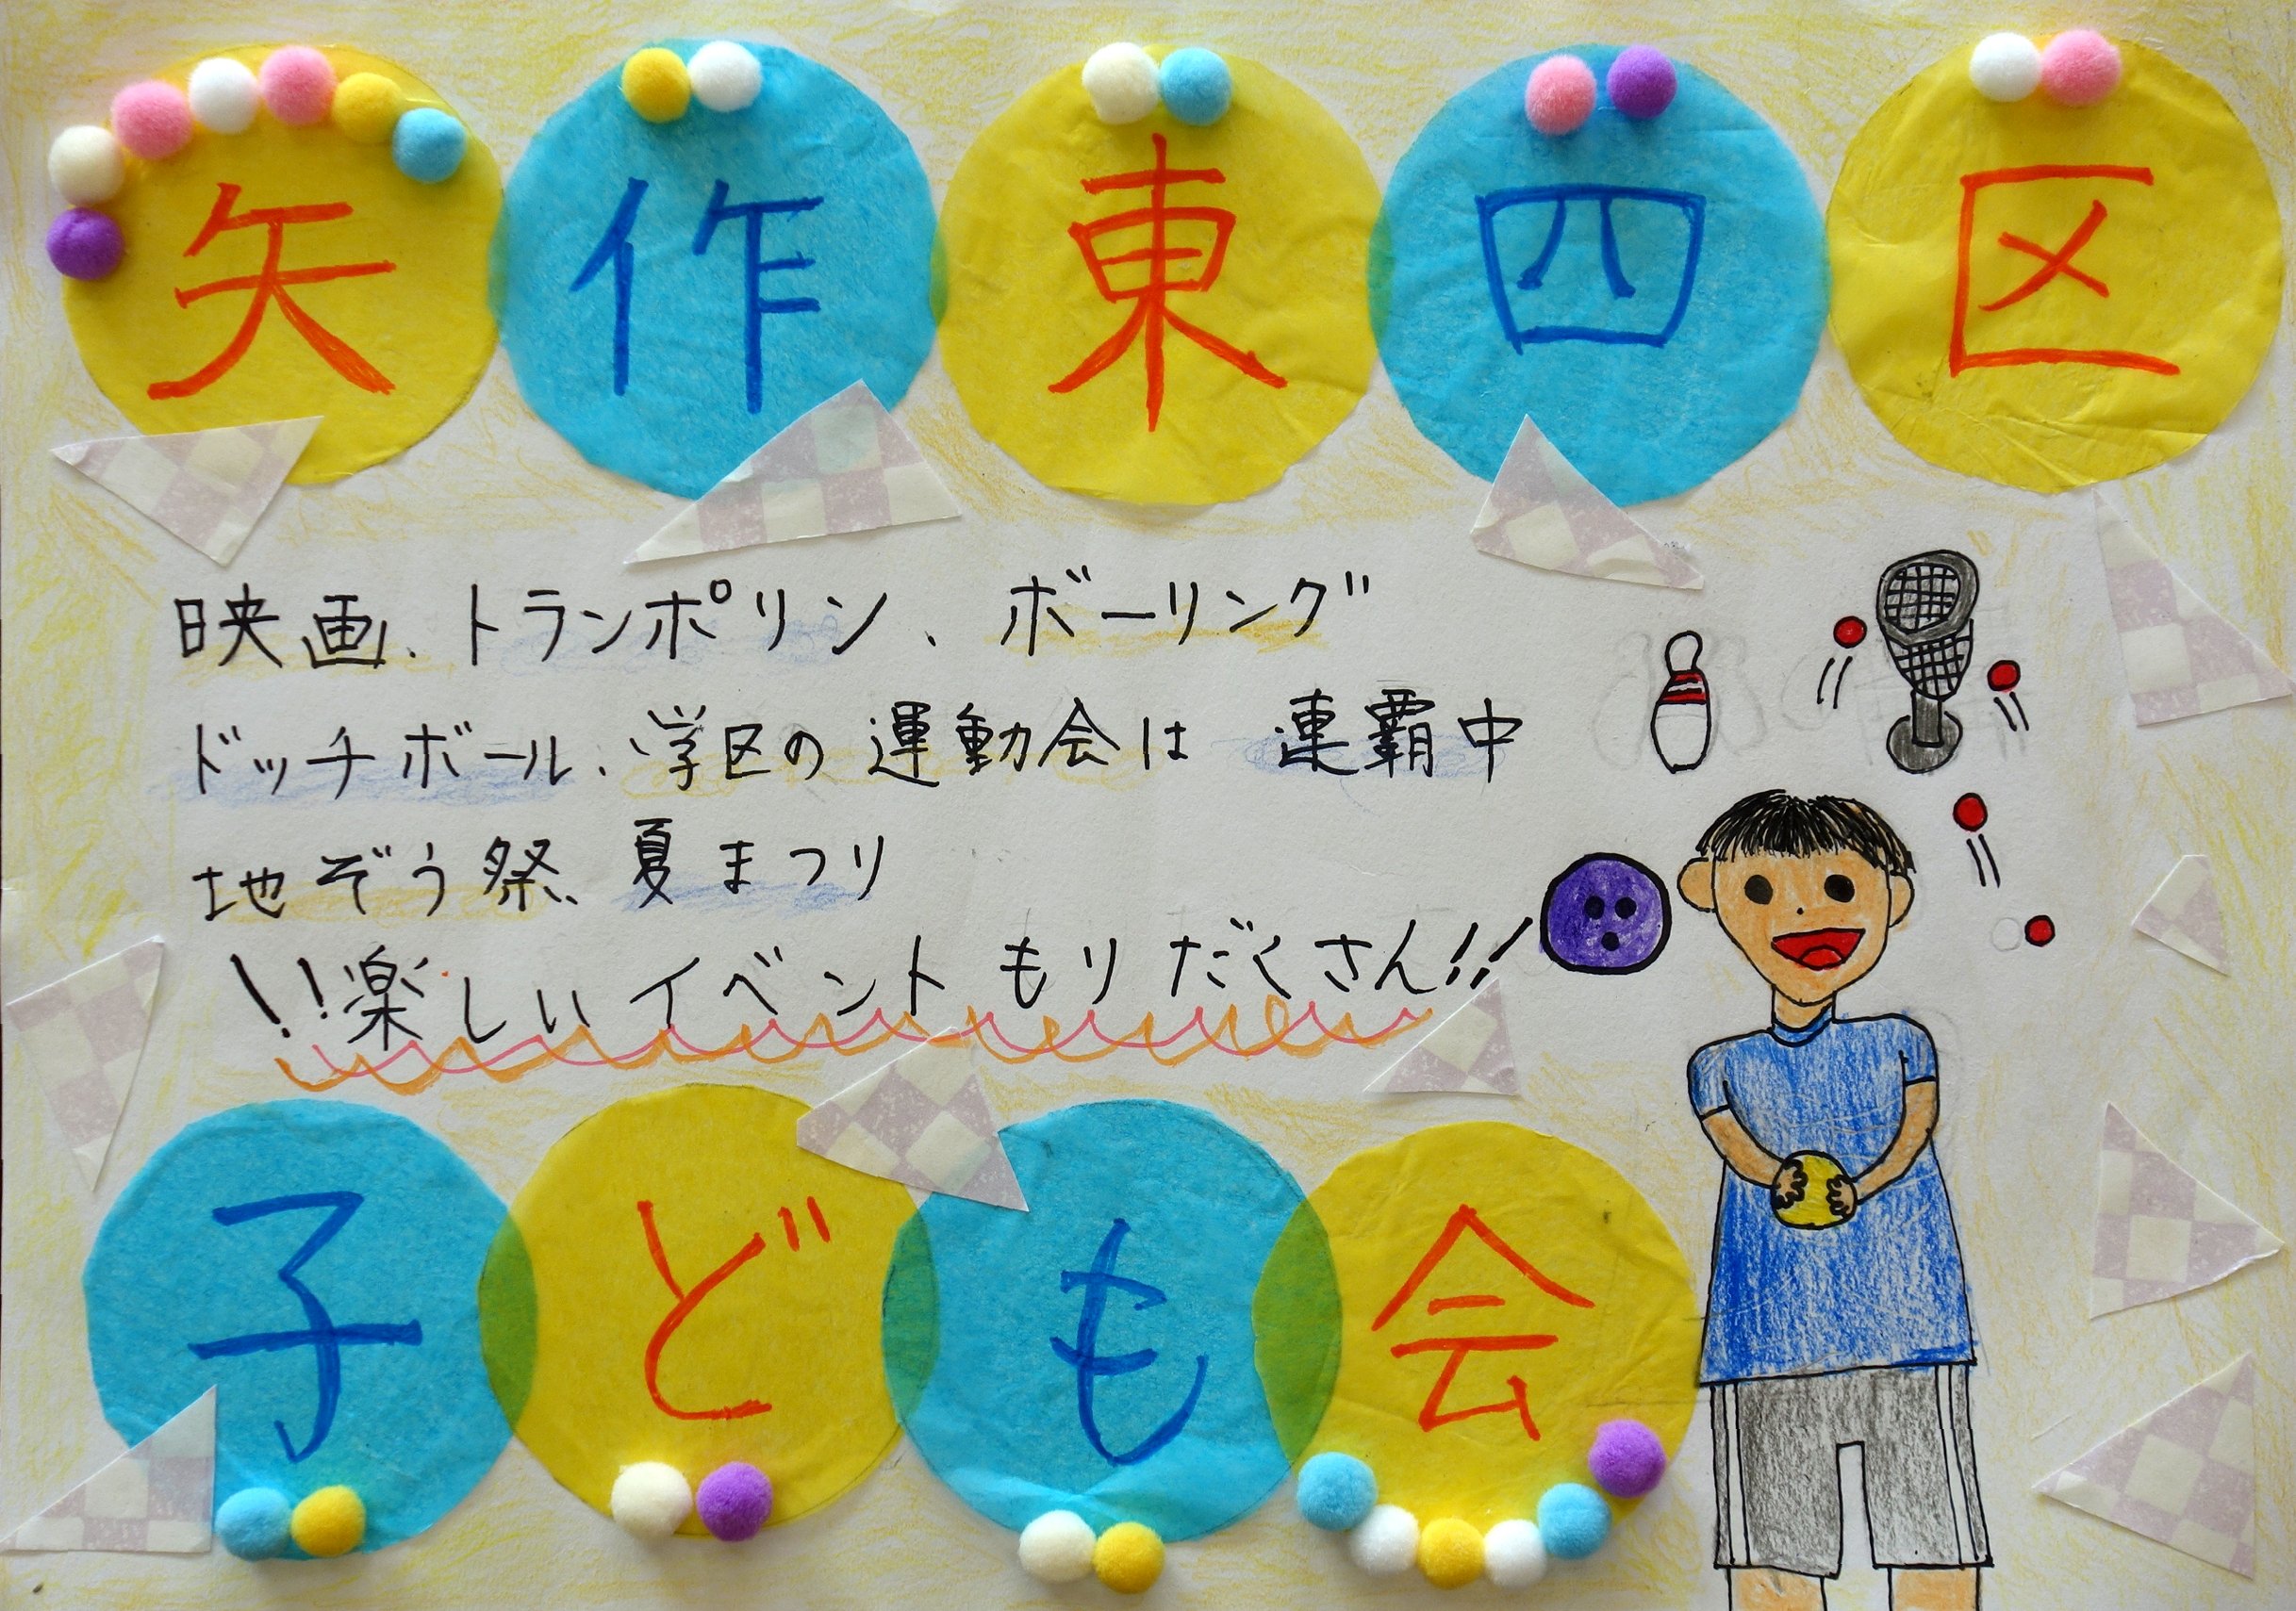 矢作東四区
映画、トランポリン、ボーリング
ドッチボール、学区の運動会は連覇中
地ぞう祭、夏まつり
!!楽しいイベントもりだくさん!!
子ども会